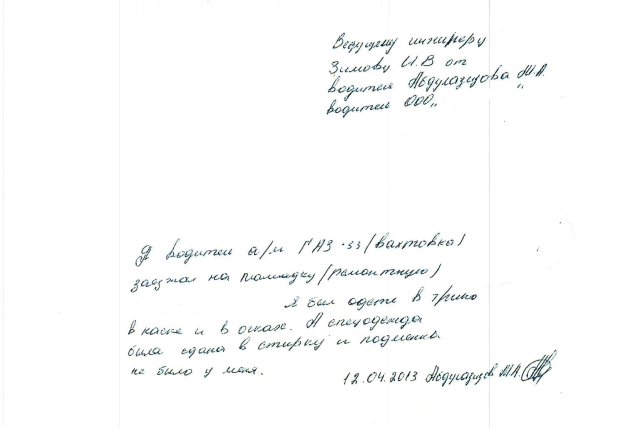 Ведущему инженеру
Зимову И.В от
водителя Абдулазизова М.А.
водителя ООО „ “
Я водител а/м ГАЗ-33 (вахтовка)
заезжал на площадку (ремонтную)
Я был одет в трико
в каске и в очках. А спецодежда
была сдана в стирку и подменки
не было у меня.
12.04.2013 Абдулазизов М.А.